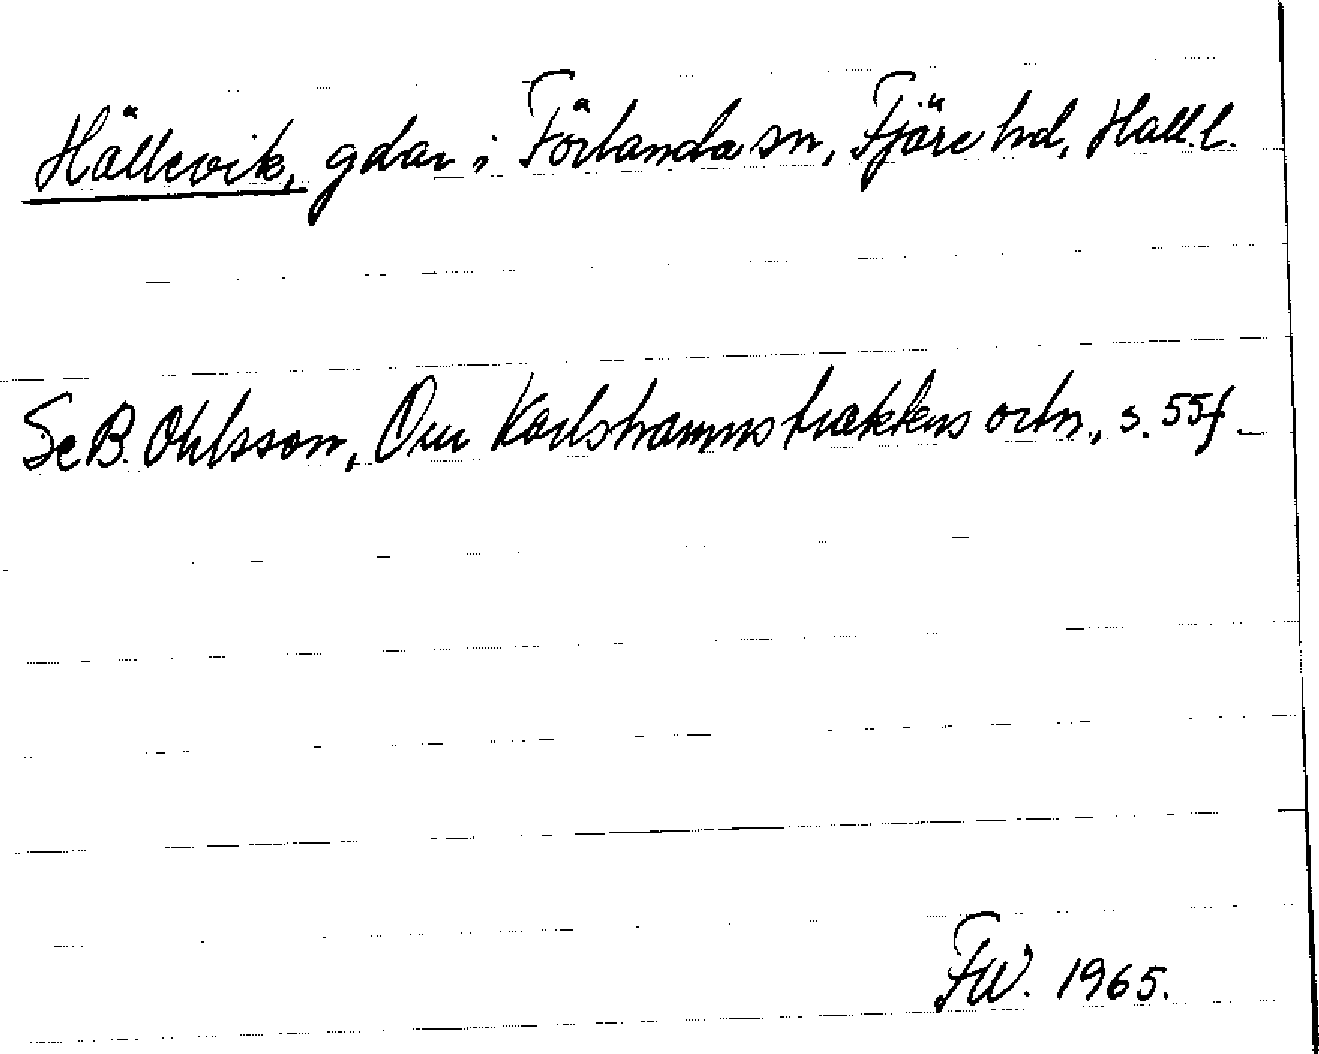 Hällevik, gdar i Förlanda sn, Fjäre hd, Hall. l.
Se B. Ohlsson, Om Karlshamnstraktens ortn., s. 55f.
FW. 1965.